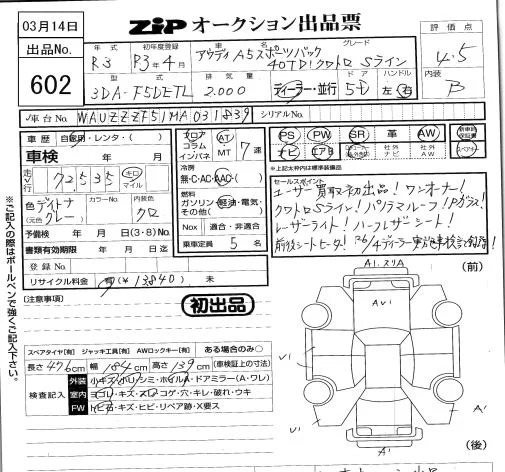 03月14日
ZIP オークション出品票
出品No.
602
年式 初年度登録 車名 グレード
R3 R3年4月 アウディA5スポーツバック 40TDIクワトロ Sライン
評価点
4.5
型式 排気量 ドア ハンドル
3DA-F5DETL 2.000 ディーラー・並行 5D 左 右
内装
B
車台No. WAUZZZF51MA031839 シリアルNo.
車歴 自家用・レンタ・( )
車検 年 月
走行 72,535 キロ マイル
色 デイトナグレー カラーNo. 内装色 クロ
(元色)
予備検 年 月 日(3・8)No.
書類有効期限 年 月 日迄
登録No.
リサイクル料金 有(¥13840) 未
フロア コラム インパネ AT MT 7速
冷房
無・C・AC・AAC・( )
燃料
ガソリン・軽油・電気・その他( )
Nox 適合・非適合
乗車定員 5名
PS PW SR 革 AW
ナビ エアB 社外ナビ 社外AW
新車時保証書
※上記太枠内は標準装備品
セールスポイント
ユーザー買取初出品!ワンオーナー!
クワトロSライン!パノラマルーフ!Pガラス!
レーザーライト!ハーフレザーシート!
(注意事項)
初出品
A1.スリA
(前)
AV1
V1
V1
A'
A'
(後)
※ご記入の際はボールペンで強くご記入下さい。
スペアタイヤ[有] ジャッキ工具[有] AWロックキー[有] ある場合のみ○
長さ476cm 幅184cm 高さ139cm (車検証上の寸法)
検査記入
外装 小キズ・小ハリ・シミ・ホイルA・ドアミラー(A・ワレ)
室内 ヨゴレ・キズ・スレ・コゲ・穴・キレ・破れ・ウキ
FW トビ石・キズ・ヒビ・リペア跡・X要ス